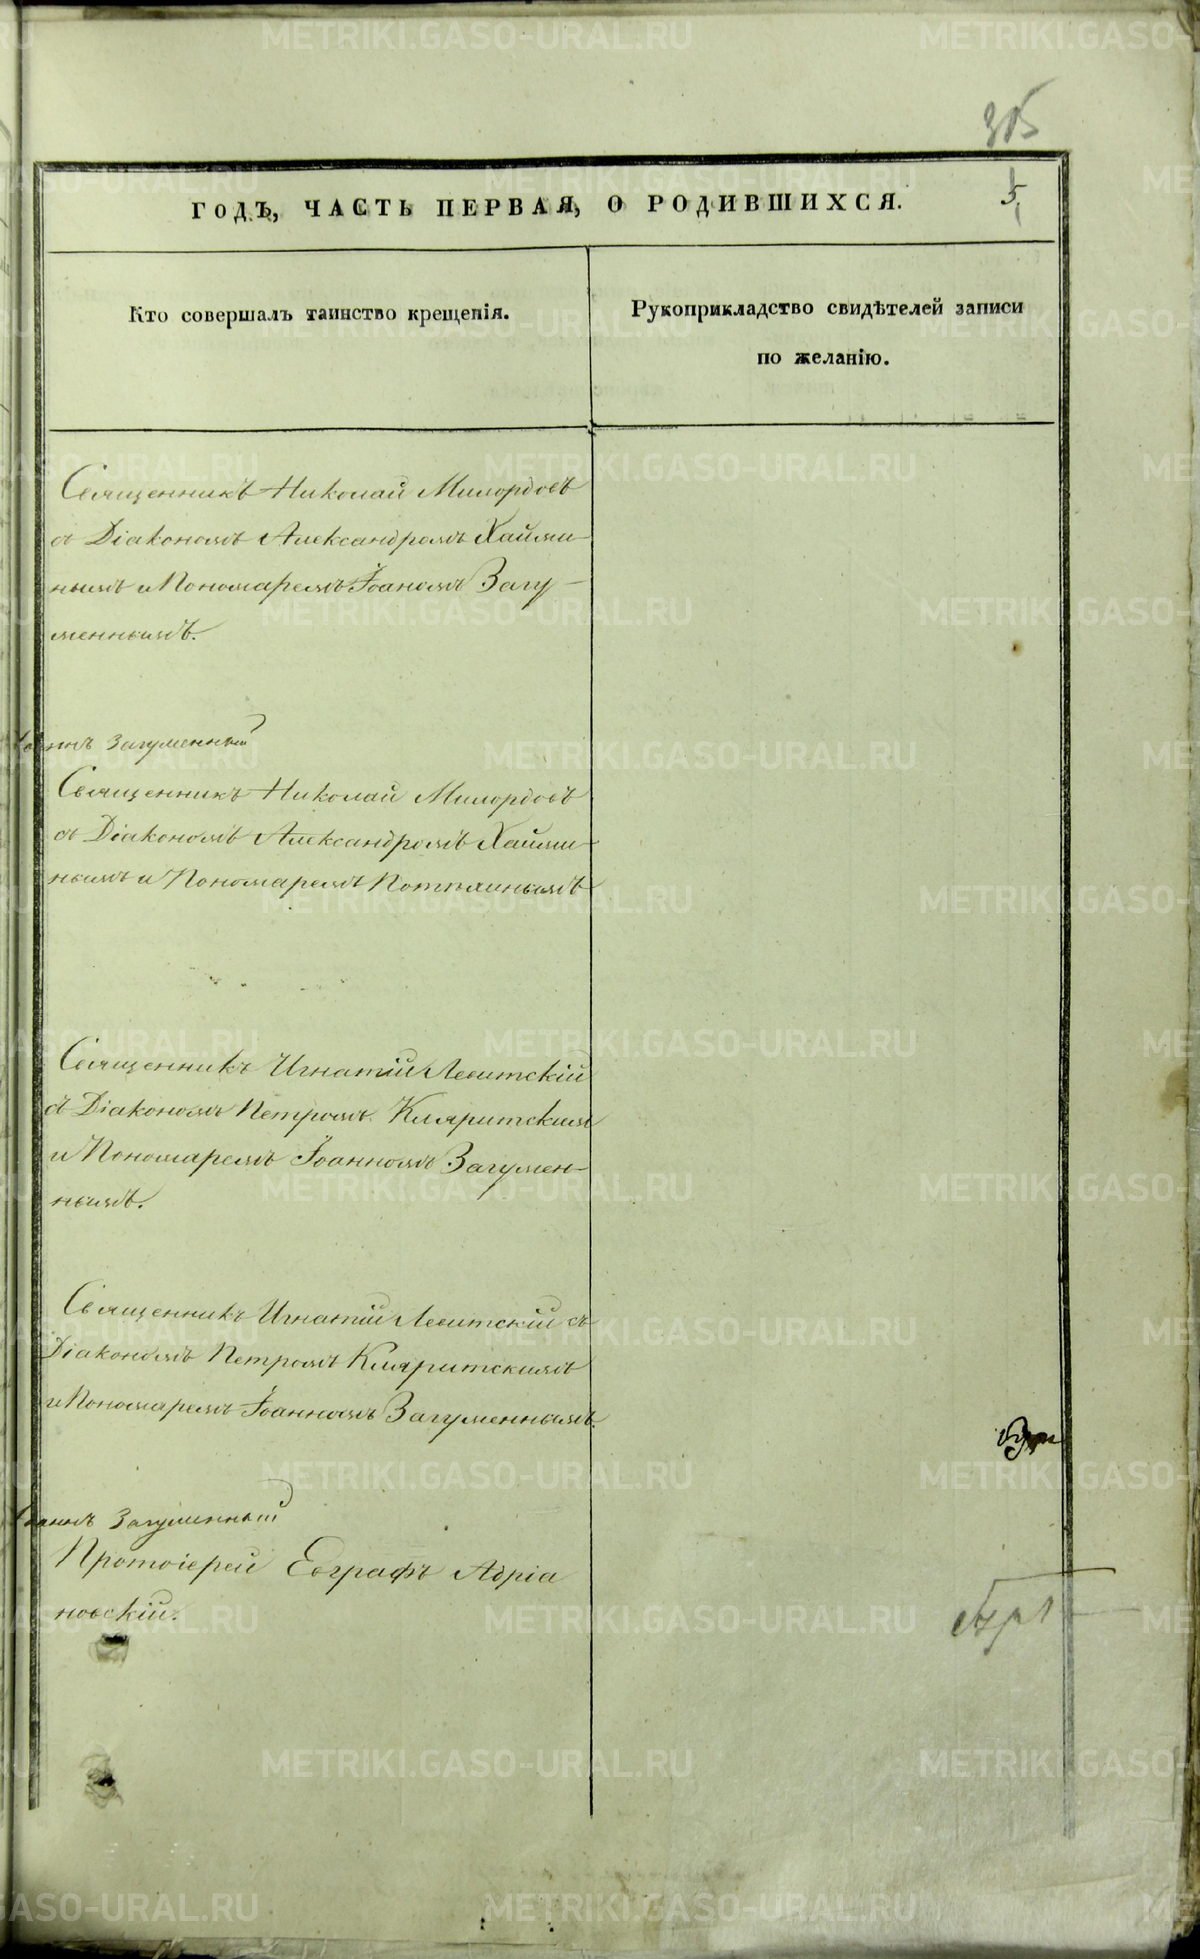 ГОДЪ, ЧАСТЬ ПЕРВАЯ, О РОДИВШИХСЯ.
5.
Кто совершалъ таинство крещенія.
Рукоприкладство свидѣтелей записи
по желанію.
Священникъ Николай Милордовъ
съ Діакономъ Александромъ Хайми-
нымъ и Пономаремъ Іоаномъ Загу-
меннымъ.
Загуменный
Священникъ Николай Милордовъ
съ Діакономъ Александромъ Хайми-
нымъ и Пономаремъ
Священникъ Игнатій Левитскій
съ Діакономъ Петромъ Кляритскимъ
и Пономаремъ Іоанномъ Загумен-
нымъ.
Священникъ Игнатій Левитскій съ
Діакономъ Петромъ Кляритскимъ
и Пономаремъ Іоанномъ Загуменнымъ.
Загуменный
Протоіерей Евграфъ Адріа
новскій.
METRIKI.GASO-URAL.RU